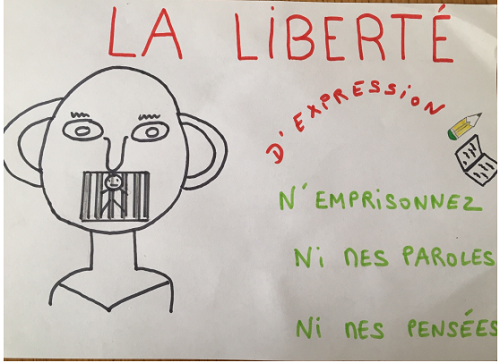 LA LiBERTÉ
D'EXPRESSiON
N'EMPRiSONNEZ
Ni MES PAROLES
Ni MES PENSÉES